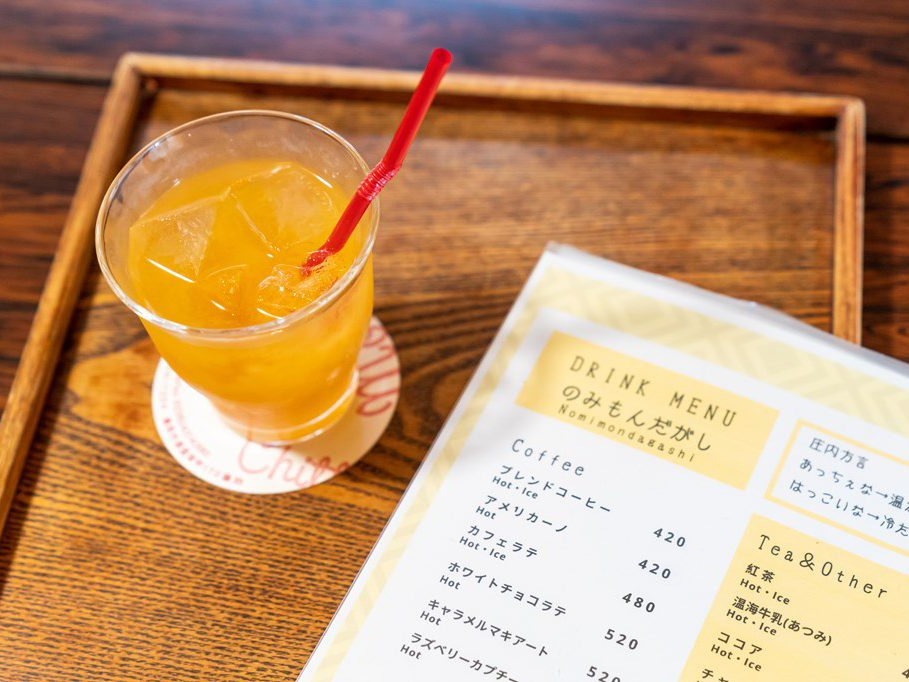 DRINK MENU
のみもんだがし
Nomimondagashi
Coffee
ブレンドコーヒー
Hot・Ice
420
アメリカーノ
Hot
420
カフェラテ
Hot・Ice
480
ホワイトチョコラテ
Hot
520
キャラメルマキアート
Hot
520
ラズベリーカプチー
Hot
庄内方言
あっちぇな→温
はっこいな→冷た
Tea&Other
紅茶
Hot・Ice
温海牛乳(あつみ)
Hot・Ice
ココア
Hot・Ice
チャ